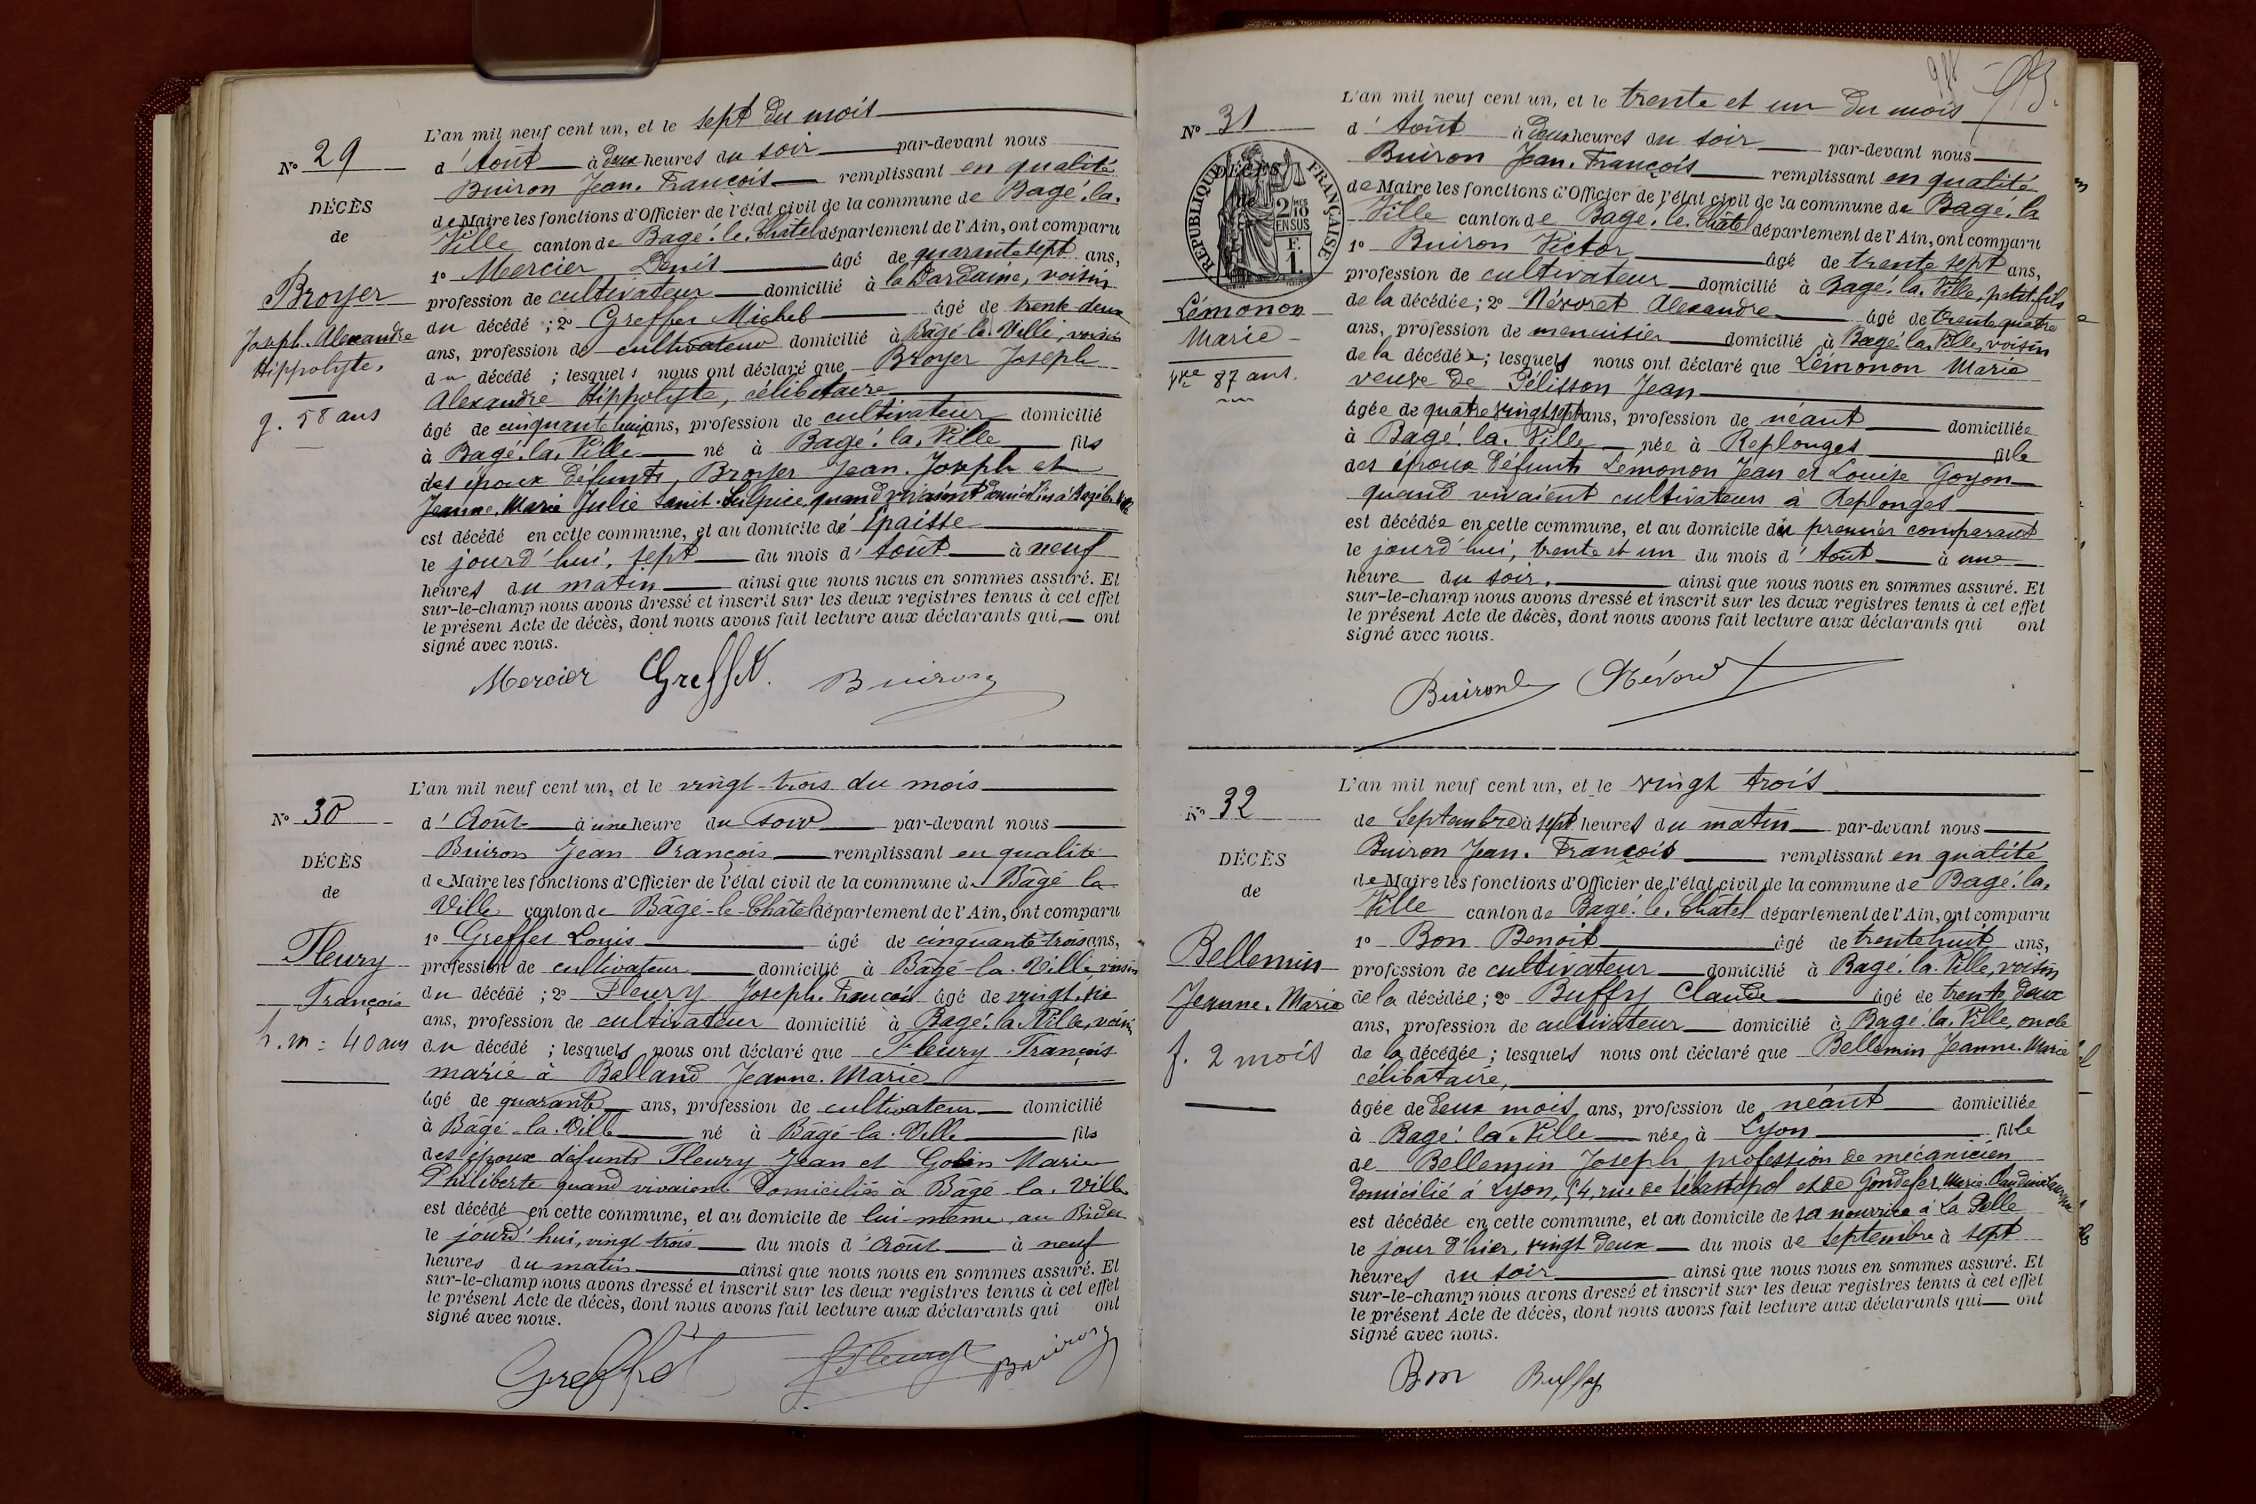 L'an mil neuf cent un, et le sept du mois
N° 29
d'Août à deux heures du soir par-devant nous
Buiron Jean. François remplissant en qualité
DÉCÈS
de Maire les fonctions d'Officier de l'état civil de la commune de Bagé. la.
de
Ville canton de Bagé. le. Châtel département de l'Ain, ont comparu
1° Mercier Denis âgé de quarante sept ans,
Broyer
profession de cultivateur domicilié à la Dardaine, voisin
Joseph. Alexandre
du décédé ; 2° Greffet Michel âgé de trente deux
Hippolyte.
ans, profession de cultivateur domicilié à Bâgé-la-Ville, voisin
du décédé ; lesquels nous ont déclaré que Broyer Joseph
Alexandre Hippolyte, célibataire
g. 58 ans
âgé de cinquante huit ans, profession de cultivateur domicilié
à Bagé. la. Ville né à Bagé. la. Ville fils
des époux défunts, Broyer Jean. Joseph et
Jeanne. Marie Julie Sulpice, quand vivaient domiciliés à Bagé la Ville
est décédé en cette commune, et au domicile de Epaisse
le jourd'hui, sept du mois d'Août à neuf
heures du matin ainsi que nous nous en sommes assuré. Et
sur-le-champ nous avons dressé et inscrit sur les deux registres tenus à cet effet
le présent Acte de décès, dont nous avons fait lecture aux déclarants qui ont
signé avec nous.
Mercier Greffet. Buiron
L'an mil neuf cent un, et le vingt-trois du mois
N° 30
d'Août à une heure du soir par-devant nous
Buiron Jean François remplissant en qualité
DÉCÈS
de Maire les fonctions d'Officier de l'état civil de la commune de Bâgé la
de
Ville canton de Bâgé-le-Châtel département de l'Ain, ont comparu
1° Greffet Louis âgé de cinquante trois ans,
Fleury
profession de cultivateur domicilié à Bâgé-la-Ville voisin
François
du décédé ; 2° Fleury Joseph. François âgé de vingt six
ans, profession de cultivateur domicilié à Bagé. la. Ville, voisin
h. m : 40 ans
du décédé ; lesquels nous ont déclaré que Fleury François
marié à Balland Jeanne. Marie
âgé de quarante ans, profession de cultivateur domicilié
à Bâgé-la-Ville né à Bâgé-la-Ville fils
des époux défunts Fleury Jean et Marie
Philiberte quand vivaient domiciliés à Bâgé-la-Ville
est décédé en cette commune, et au domicile de lui-même au
le jourd'hui, vingt trois du mois d'Août à neuf
heures du matin ainsi que nous nous en sommes assuré. Et
sur-le-champ nous avons dressé et inscrit sur les deux registres tenus à cet effet
le présent Acte de décès, dont nous avons fait lecture aux déclarants qui ont
signé avec nous.
Greffet J Fleury Buiron
L'an mil neuf cent un, et le trente et un du mois
N° 31
d'Août à deux heures du soir par-devant nous
RÉPUBLIQUE FRANÇAISE
DÉCÈS
de
2/10 EN SUS
F. 1.
Buiron Jean. François remplissant en qualité
de Maire les fonctions d'Officier de l'état civil de la commune de Bagé. la
Ville canton de Bagé. le. Châtel département de l'Ain, ont comparu
1° Buiron Victor âgé de trente sept ans,
profession de cultivateur domicilié à Bagé. la. Ville, petit fils
Lémonon
de la décédée ; 2° Névoret Alexandre âgé de trente quatre
Marie
ans, profession de menuisier domicilié à Bagé la Ville, voisin
de la décédée ; lesquels nous ont déclaré que Lémonon Marie
vve 87 ans.
veuve de Pélisson Jean
âgée de quatre vingt sept ans, profession de néant domiciliée
à Bagé. la. Ville née à Replonges fille
des époux défunts Lemonon Jean et Louise Goyon
quand vivaient cultivateurs à Replonges
est décédée en cette commune, et au domicile du premier comparant
le jourd'hui, trente et un du mois d'Août à une
heure du soir. ainsi que nous nous en sommes assuré. Et
sur-le-champ nous avons dressé et inscrit sur les deux registres tenus à cet effet
le présent Acte de décès, dont nous avons fait lecture aux déclarants qui ont
signé avec nous.
Buiron Névoret
L'an mil neuf cent un, et le vingt trois
N° 32
de Septembre à sept heures du matin par-devant nous
Buiron Jean. François remplissant en qualité
DÉCÈS
de Maire les fonctions d'Officier de l'état civil de la commune de Bagé. la.
de
Ville canton de Bagé. le. Châtel département de l'Ain, ont comparu
1° Bon Benoit âgé de trente huit ans,
Bellemin
profession de cultivateur domicilié à Bagé. la. Ville, voisin
Jeanne. Marie
de la décédée ; 2° Buffy Claude âgé de trente deux
ans, profession de cultivateur domicilié à Bagé. la. Ville, oncle
f. 2 mois
de la décédée ; lesquels nous ont déclaré que Bellemin Jeanne. Marie
célibataire,
âgée de deux mois ans, profession de néant domiciliée
à Bagé. la. Ville née à Lyon fille
de Bellemin Joseph profession de mécanicien
domicilié à Lyon, 54, rue de Sébastopol et de Marie. Claudine
est décédée en cette commune, et au domicile de sa nourrice à La
le jour d'hier, vingt deux du mois de Septembre à sept
heures du soir ainsi que nous nous en sommes assuré. Et
sur-le-champ nous avons dressé et inscrit sur les deux registres tenus à cet effet
le présent Acte de décès, dont nous avons fait lecture aux déclarants qui ont
signé avec nous.
Bon Buffy